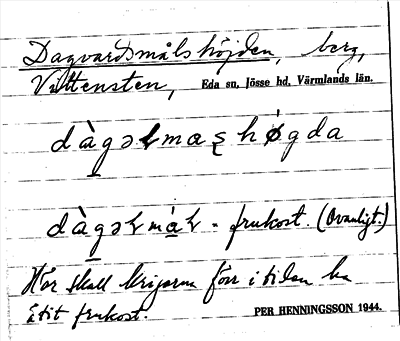 Dagvardsmålshöjden, berg,
Vittensten, Eda sn, Jösse hd, Värmlands län.
dàgəɫmæʂhøgda
dàgəɫmáɫ = frukost. (Ovanligt.)
Här skall krigarna förr i tiden ha
ätit frukost. PER HENNINGSSON 1944.